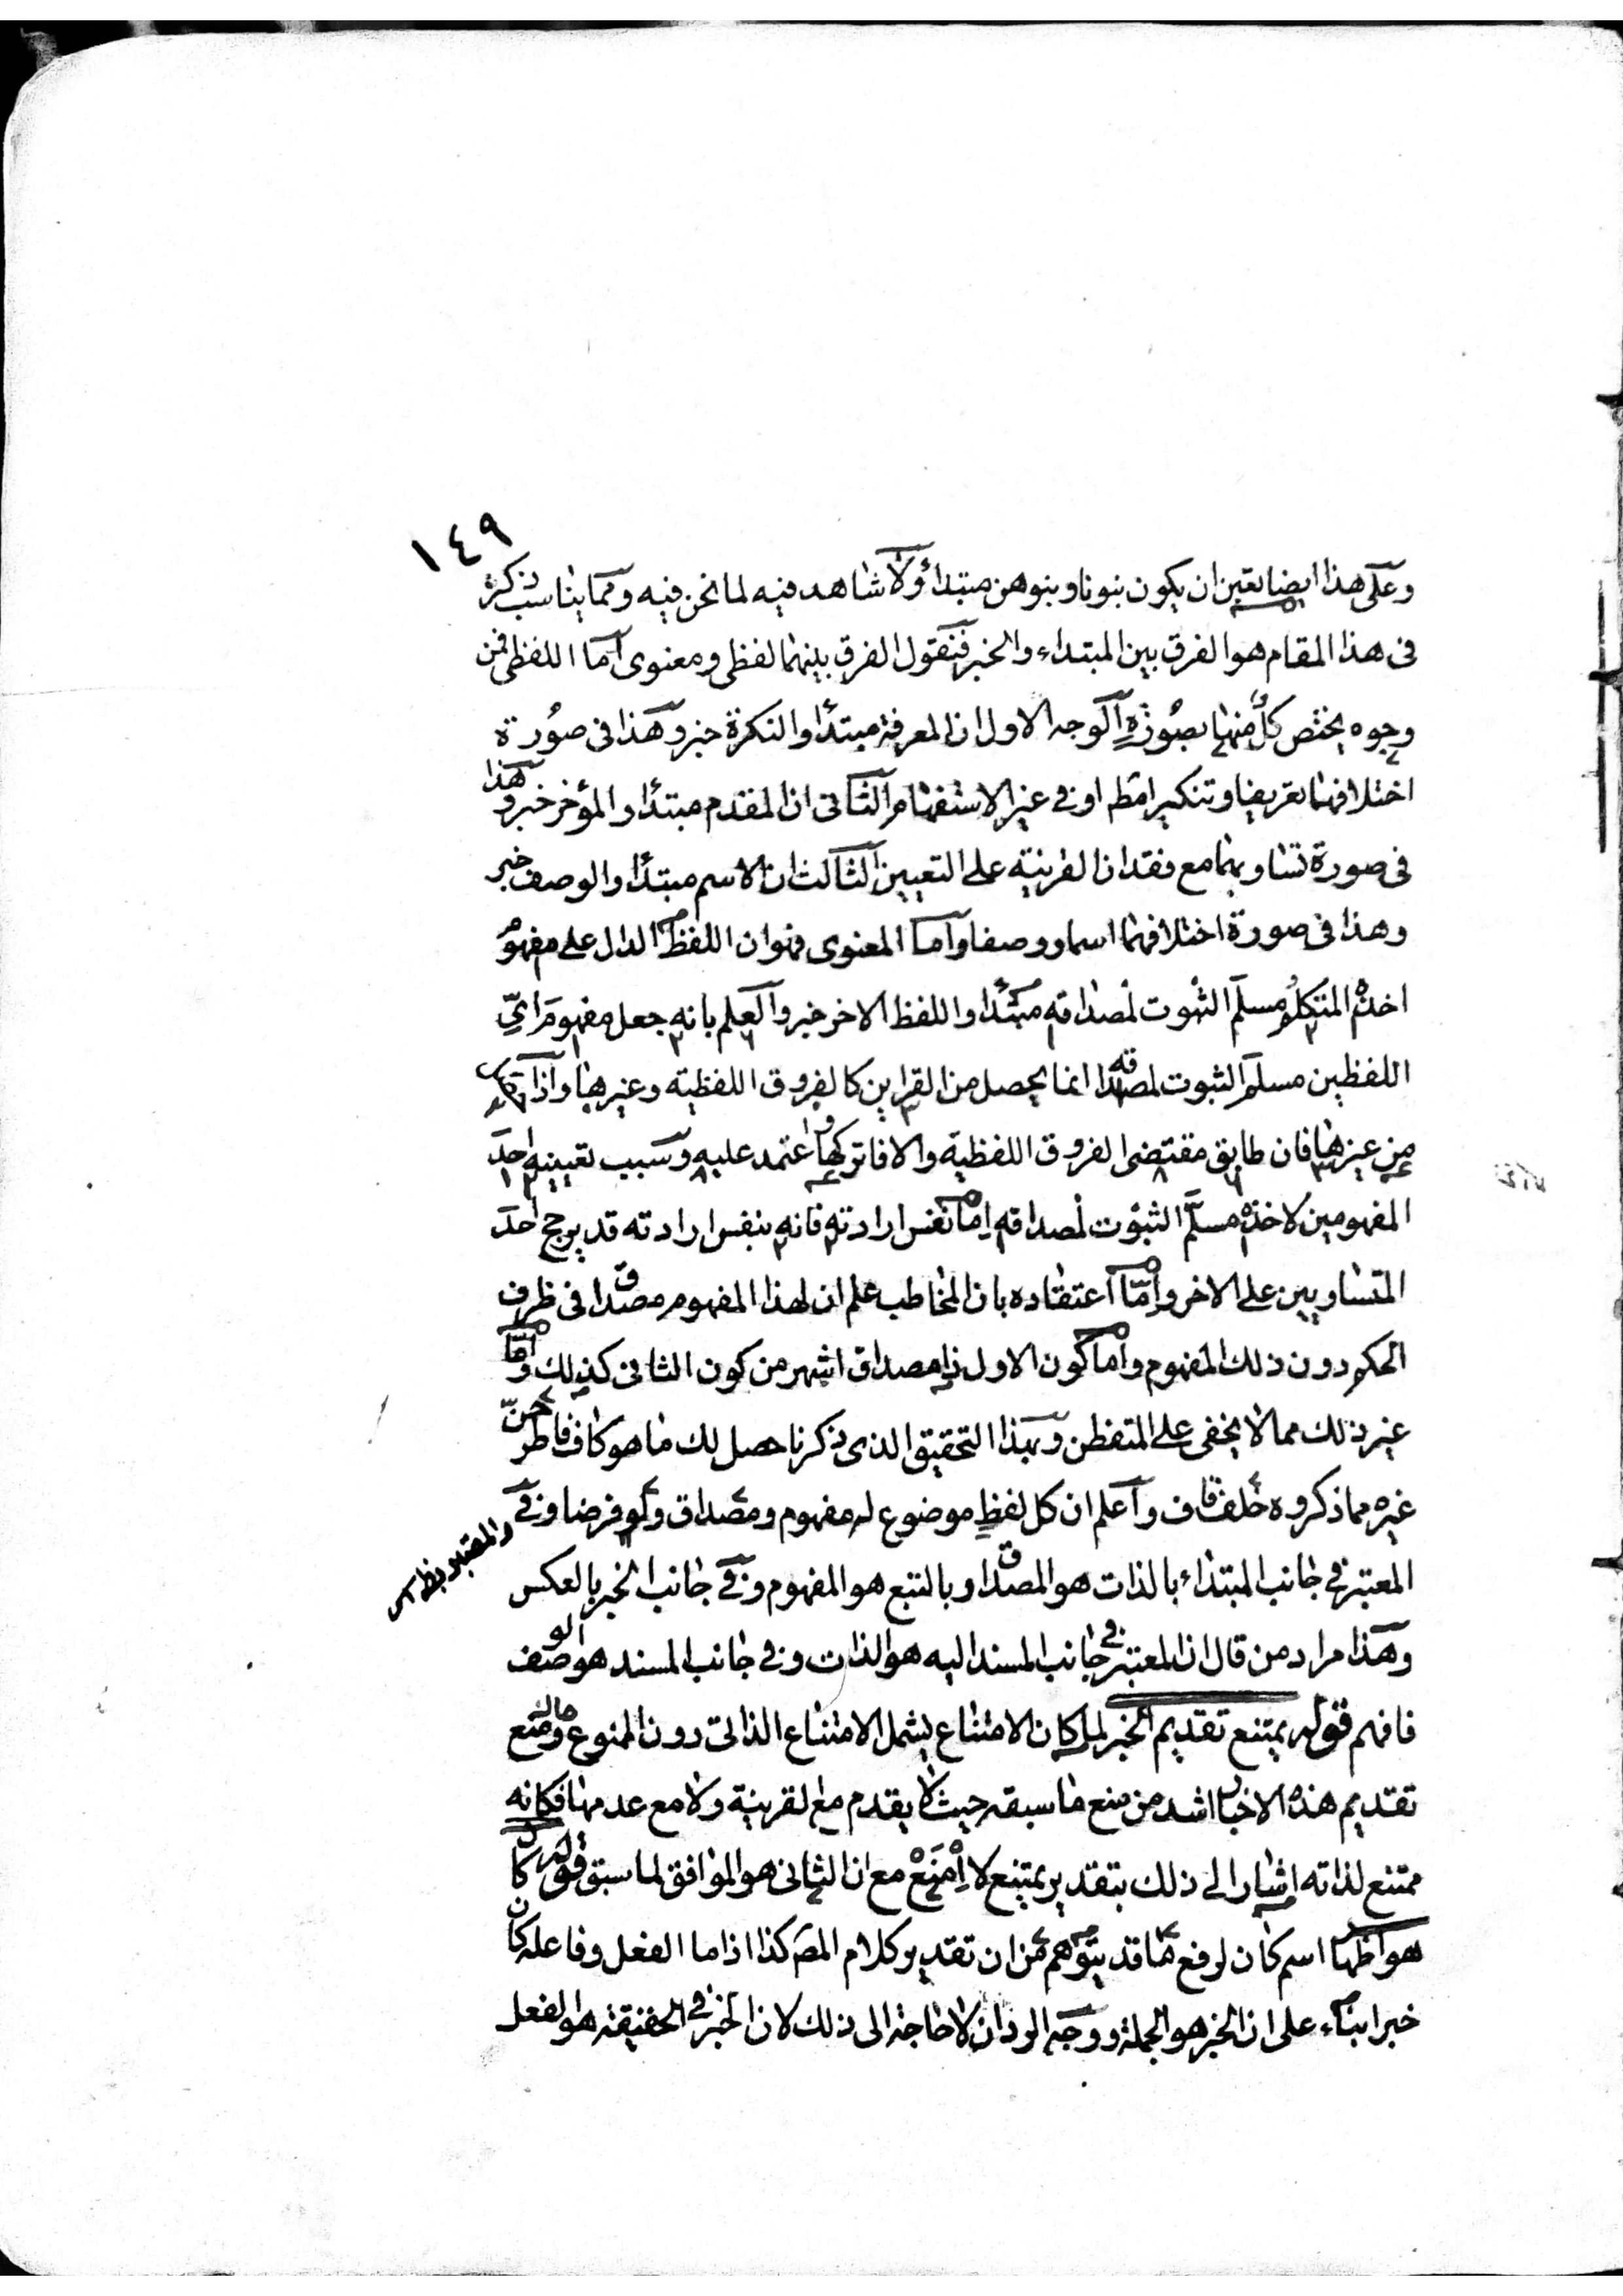 ١٤٩
وعلى هذا ايضا تعين ان يكون بنونا وبنوهن مبتداء ولا شاهد فيه لما نحن فيه ومما يناسب ذكره
فى هذا المقام هو الفرق بين المبتداء والخبر فنقول الفرق بينهما لفظى ومعنوى اما اللفظى فمن
وجوه يختص كل منها بصورة الوجه الاول ان المعرفة مبتدأ والنكرة خبر وهذا فى صورة
اختلافهما تعريفا وتنكيرا مط او فى غير الاستفهام الثانى ان المقدم مبتدأ والمؤخر خبر وهذا
فى صورة تساويهما مع فقدان القرينة على التعيين الثالث ان الاسم مبتدأ والوصف خبر
وهذا فى صورة اختلافهما اسما ووصفا واما المعنوى فهو ان اللفظ الدال على مفهوم
اخذه المتكلم مسلم الثبوت لمصداقه مبتدأ واللفظ الاخر خبر والعلم بانه جعل مفهوم اىّ
اللفظين مسلم الثبوت لمصداقه انما يحصل من القراين كالفروق اللفظية وغيرها واذا
من غيرها فان طابق مقتضى الفروق اللفظية والا فاتركها واعتمد عليه وسبب تعيينه احد
المفهومين لاخذه مسلّم الثبوت لمصداقه اما نفس ارادته فانه بنفس ارادته قد يرجح احد
المتساويين على الاخر وامّا اعتقاده بان المخاطب علم ان لهذا المفهوم مصداقا فى ظرف
الحكم دون ذلك المفهوم واما كون الاول ذا مصداق اشهر من كون الثانى كذلك وامّا
غير ذلك مما لا يخفى على المتفطن وبهذا التحقيق الذى ذكرنا حصل لك ما هو كاف فاطرحنّ
غيره مما ذكروه خلف قاف واعلم ان كل لفظ موضوع له مفهوم ومصداق ولو فرضا وفى
المعتبر فى جانب المبتداء بالذات هو المصداق وبالتبع هو المفهوم وفى جانب الخبر بالعكس
وهذا مراد من قال ان المعتبر فى جانب المسند اليه هو الذات وفى جانب المسند هو الوصف
فافهم قوله يمتنع تقديم الخبر لما كان الامتناع يشمل الامتناع الذاتى دون الممنوع ومنع
تقديم هذه الاخبار اشد من منع ما سبقه حيث لا يقدم مع القرينة ولا مع عدمها فكانه
ممتنع لذاته اشار الى ذلك بتقدير يمتنع لا اِمْنَعْ مع ان الثانى هو الموافق لما سبق قوله كان
هو اظهار اسم كان لرفع ما قد يتوهم من ان تقدير كلام المص كذا اذا ما الفعل وفاعله كان
خبرا بناء على ان الخبر هو الجملة ووجه الرد ان لا حاجة الى ذلك لان الخبر فى الحقيقة هو الفعل